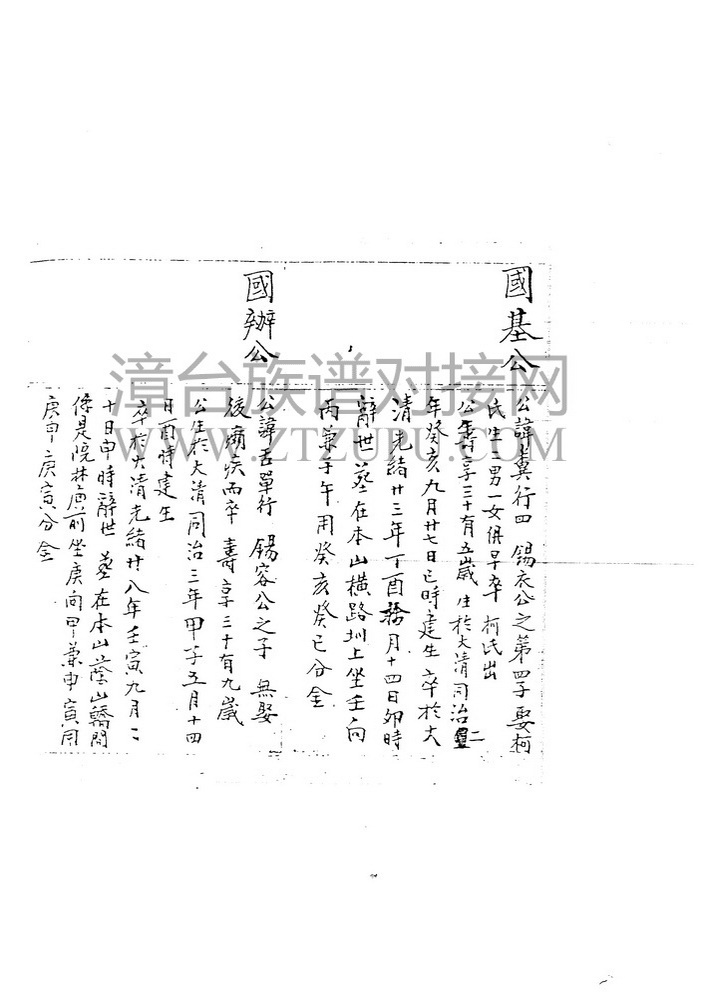 國基公
公諱糞行四 錫衣公之第四子娶柯
氏生二男一女俱早卒 柯氏出
公壽享三十有五歲 生於大清同治二
年癸亥九月廿七日巳時建生 卒於大
清光緒廿三年丁酉拾月十四日卯時
辭世 葬在本山橫路圳上坐壬向
丙兼子午用癸亥癸巳分金
國辦公
公諱舌單行 錫容公之子 無娶
後痨疾而卒 壽享三十有九歲
公生於大清同治三年甲子五月十四
日酉時建生
卒於大清光緒廿八年壬寅九月二
十日申時辭世 葬在本山蔭山轎間
像是院林庙前坐庚向甲兼申寅用
庚申庚寅分金
漳台族谱对接网
WWW.ZTZUPU.COM